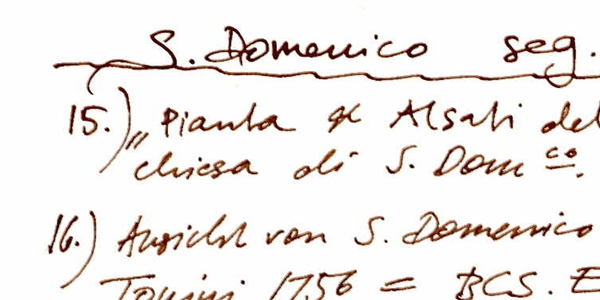 S. Domenico seg.
15.) „Pianta & Alsati del
chiesa di S. Domco.
16.) Ansicht von S. Domenico
1756 = BCS. E